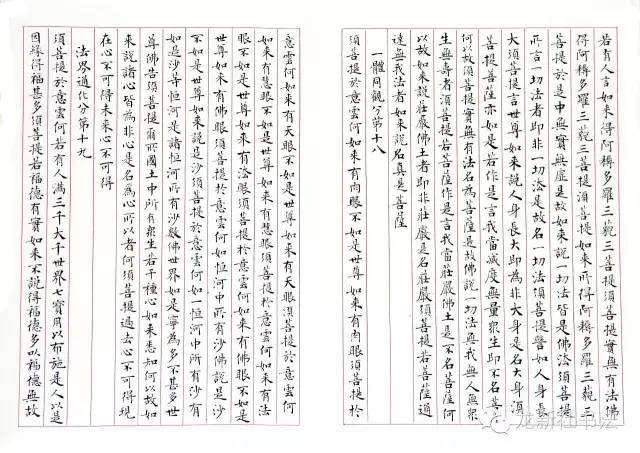 若有人言如來得阿耨多羅三藐三菩提須菩提實無有法佛
得阿耨多羅三藐三菩提須菩提如來所得阿耨多羅三藐三
菩提於是中無實無虛是故如來說一切法皆是佛法須菩提
所言一切法者即非一切法是故名一切法須菩提譬如人身長
大須菩提言世尊如來說人身長大即為非大身是名大身須
菩提菩薩亦如是若作是言我當滅度無量眾生即不名菩
何以故須菩提實無有法名為菩薩是故佛說一切法無我無人無眾
生無壽者須菩提若菩薩作是言我當莊嚴佛土是不名菩薩何
以故如來說莊嚴佛土者即非莊嚴是名莊嚴須菩提若菩薩通
達無我法者如來說名真是菩薩
一體同觀分第十八
須菩提於意雲何如來有肉眼不如是世尊如來有肉眼須菩提於
意雲何如來有天眼不如是世尊如來有天眼須菩提於意雲何
如來有慧眼不如是世尊如來有慧眼須菩提於意雲何如來有法
眼不如是世尊如來有法眼須菩提於意雲何如來有佛眼不如是
世尊如來有佛眼須菩提於意雲何如恒河中所有沙佛說是沙
不如是世尊如來說是沙須菩提於意雲何如一恒河中所有沙有
如是沙等恒河是諸恒河所有沙數佛世界如是寧為多不甚多世
尊佛告須菩提爾所國土中所有眾生若干種心如來悉知何以故如
來說諸心皆為非心是名為心所以者何須菩提過去心不可得現
在心不可得未來心不可得
法界通化分第十九
須菩提於意雲何若有人滿三千大千世界七寶用以布施是人以是
因緣得福甚多須菩提若福德有實如來不說得福德多以福德無故
龙新和书法